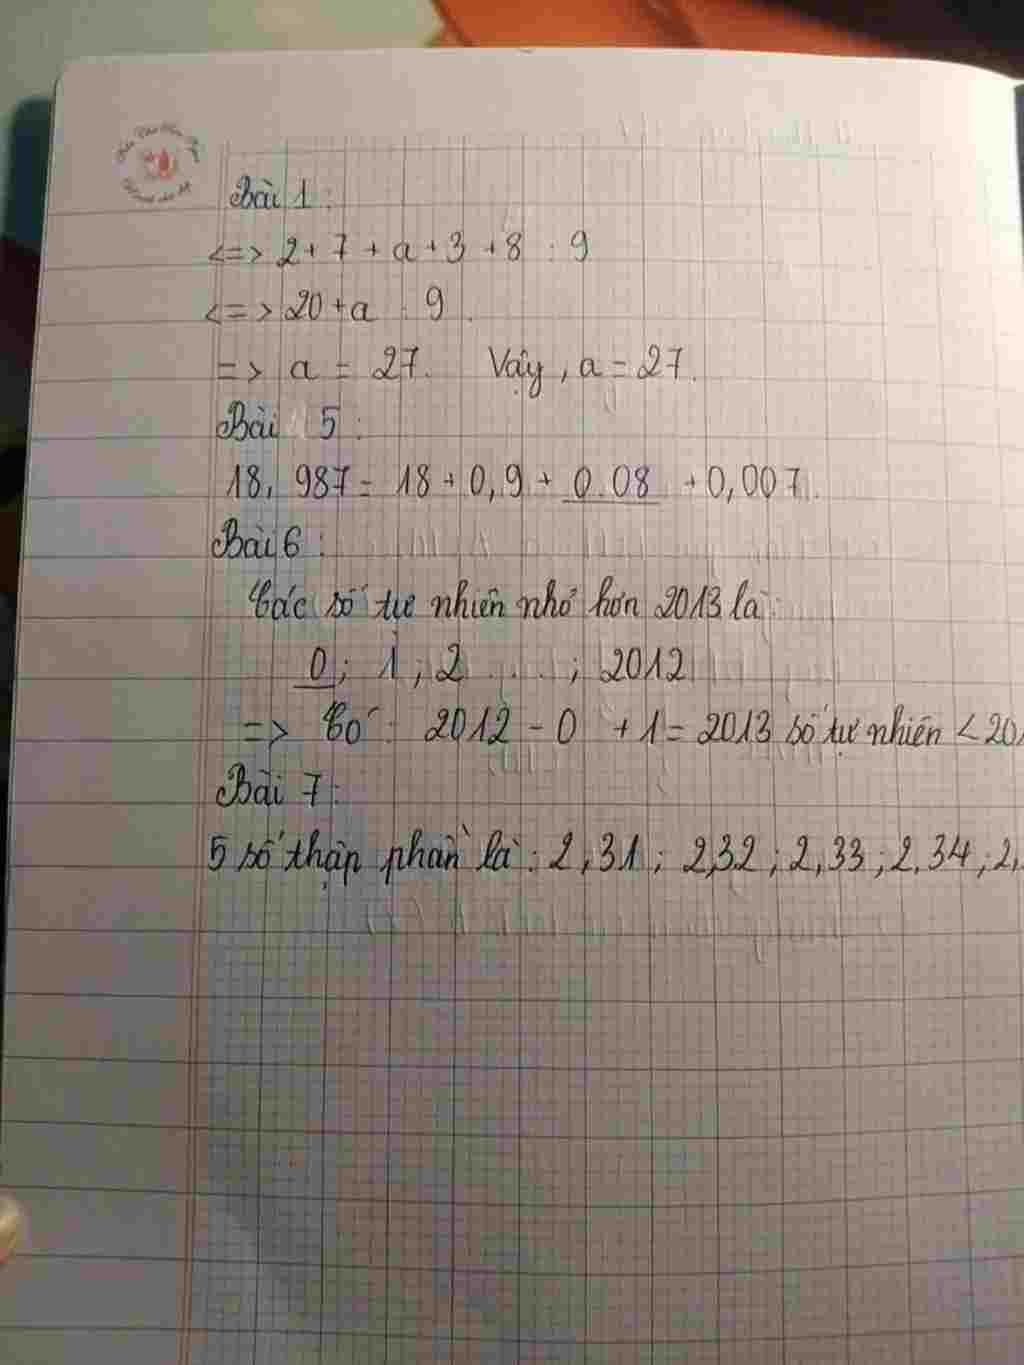 Bài 1:
<=> 2+7+a+3+8 : 9
<=> 20+a : 9.
=> a = 27. Vậy, a = 27.
Bài 5:
18,987 = 18 + 0,9 + 0.08 + 0,007.
Bài 6:
Các số tự nhiên nhỏ hơn 2013 là:
0; 1; 2 ....; 2012
=> Có: 2012 - 0 + 1 = 2013 số tự nhiên < 20
Bài 7:
5 số thập phân là: 2,31; 2,32; 2,33; 2,34; 2,